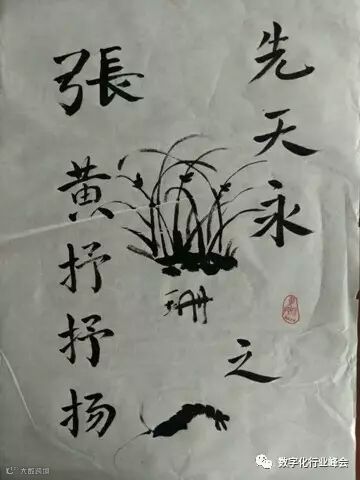 先天永之
珊
張黄抒抒扬
大数跨境
数字化行业峰会